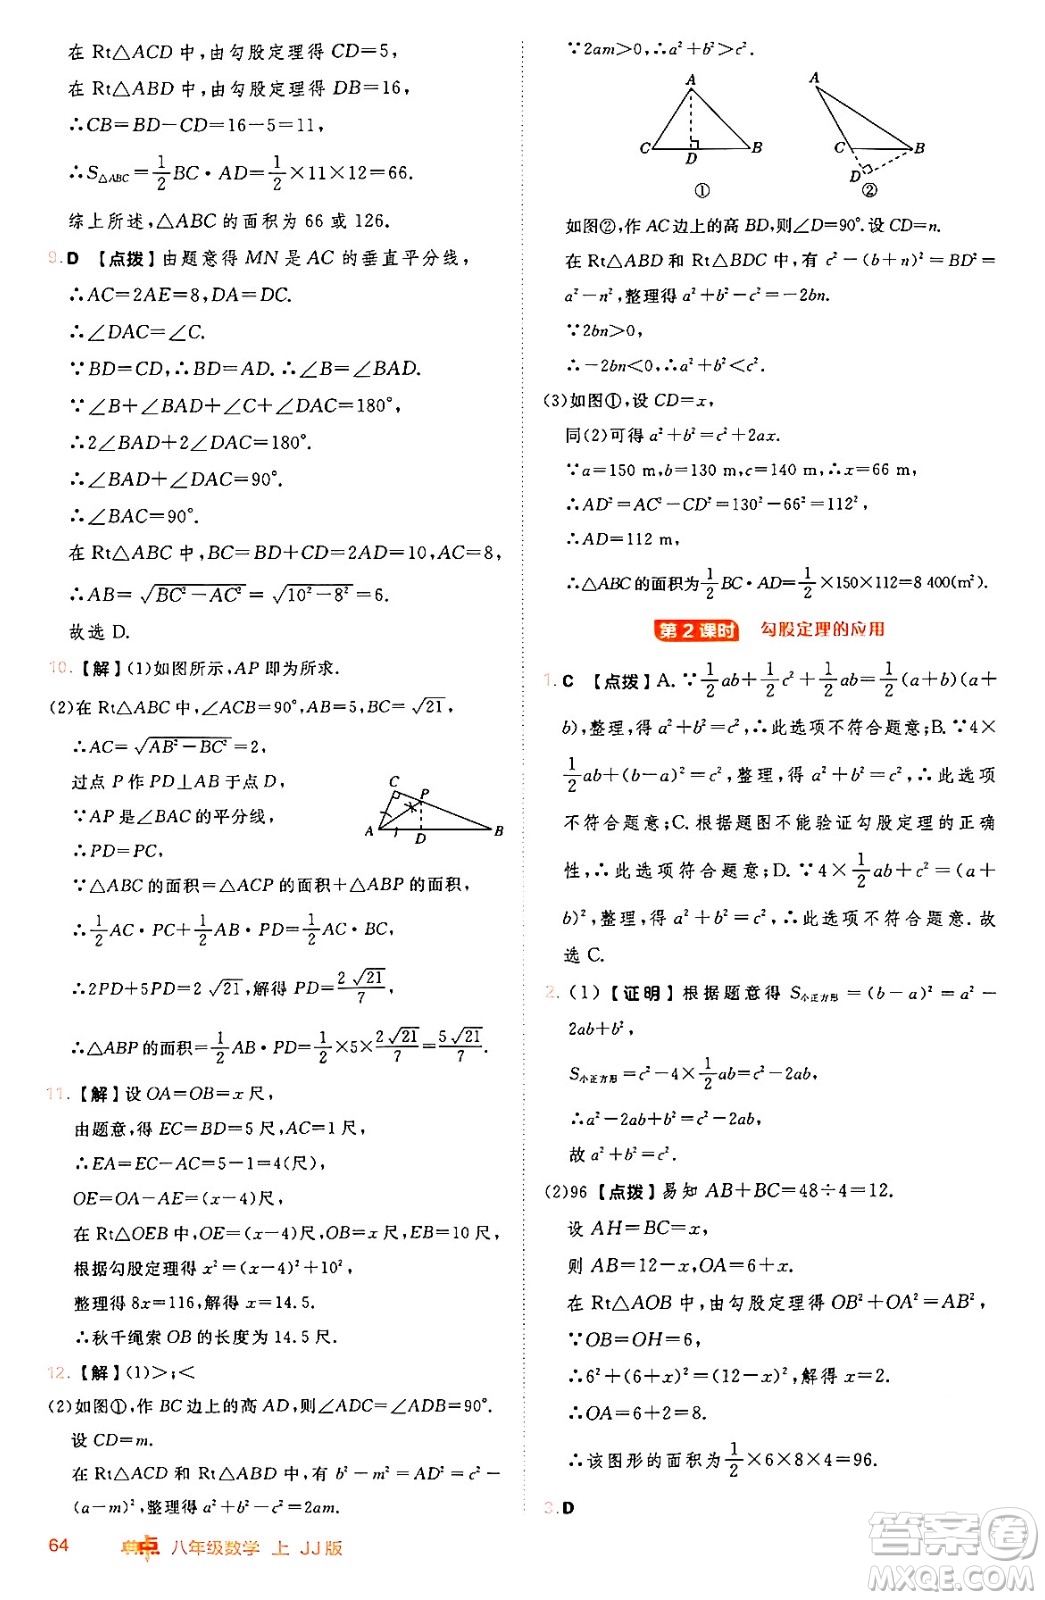 在 Rt△ACD 中,由勾股定理得 CD=5,
在 Rt△ABD 中,由勾股定理得 DB=16,
∴CB=BD-CD=16-5=11,
∴S△ABC=1/2 BC·AD=1/2×11×12=66.
综上所述,△ABC 的面积为 66 或 126.
9. D 【点拨】由题意得 MN 是 AC 的垂直平分线,
∴AC=2AE=8,DA=DC.
∴∠DAC=∠C.
∵BD=CD,∴BD=AD.
∴∠B=∠BAD.
∵∠B+∠BAD+∠C+∠DAC=180°,
∴2∠BAD+2∠DAC=180°.
∴∠BAD+∠DAC=90°.
∴∠BAC=90°.
在 Rt△ABC 中,BC=BD+CD=2AD=10,AC=8,
∴AB=√(BC²-AC²)=√(10²-8²)=6.
故选 D.
10. 【解】(1)如图所示,AP 即为所求.
(2)在 Rt△ABC 中,∠C=90°,AB=5,BC=√21,
∴AC=√(AB²-BC²)=2,
过点 P 作 PD⊥AB 于点 D,
∵AP 是∠BAC 的平分线,
∴PD=PC,
∵△ABC 的面积=△ACP 的面积+△ABP 的面积,
∴1/2 AC·PC+1/2 AB·PD=1/2 AC·BC,
∴2PD+5PD=2√21,解得 PD=2√21/7,
∴△ABP 的面积=1/2 AB·PD=1/2×5×2√21/7=5√21/7.
C P A D B
11. 【解】设 OA=OB=x 尺,
由题意,得 EC=BD=5 尺,AC=1 尺,
∴EA=EC-AC=5-1=4(尺),
OE=OA-AE=(x-4)尺,
在 Rt△OEB 中,OE=(x-4)尺,OB=x 尺,EB=10 尺,
根据勾股定理得 x²=(x-4)²+10²,
整理得 8x=116,解得 x=14.5.
∴秋千绳索 OB 的长度为 14.5 尺.
12. 【解】(1)>;<
(2)如图①,作 BC 边上的高 AD,则∠ADC=∠ADB=90°.
设 CD=m.
在 Rt△ACD 和 Rt△ABD 中,有 b²-m²=AD²=c²-
(a-m)²,整理得 a²+b²-c²=2am.
64 典点 八年级数学 上 JJ版
∵2am>0,∴a²+b²>c².
A C D B ①
A C B D ②
如图②,作 AC 边上的高 BD,则∠D=90°.设 CD=n.
在 Rt△ABD 和 Rt△BDC 中,有 c²-(b+n)²=BD²=
a²-n²,整理得 a²+b²-c²=-2bn.
∵2bn>0,
∴-2bn<0,∴a²+b²<c².
(3)如图①,设 CD=x,
同(2)可得 a²+b²=c²+2ax.
∵a=150 m,b=130 m,c=140 m,∴x=66 m,
∴AD²=AC²-CD²=130²-66²=112²,
∴AD=112 m,
∴△ABC 的面积为1/2 BC·AD=1/2×150×112=8 400(m²).
第2课时 勾股定理的应用
1. C 【点拨】A.∵1/2 ab+1/2 c²+1/2 ab=1/2(a+b)(a+
b),整理,得 a²+b²=c²,∴此选项不符合题意;B.∵4×
1/2 ab+(b-a)²=c²,整理,得 a²+b²=c²,∴此选项
不符合题意;C.根据题图不能验证勾股定理的正确
性,∴此选项符合题意;D.∵4×1/2 ab+c²=(a+
b)²,整理,得 a²+b²=c²,∴此选项不符合题意.故
选 C.
2. (1)【证明】根据题意得 S小正方形=(b-a)²=a²-
2ab+b²,
S小正方形=c²-4×1/2 ab=c²-2ab,
∴a²-2ab+b²=c²-2ab,
故 a²+b²=c².
(2)96 【点拨】易知 AB+BC=48÷4=12.
设 AH=BC=x,
则 AB=12-x,OA=6+x.
在 Rt△AOB 中,由勾股定理得 OB²+OA²=AB²,
∵OB=OH=6,
∴6²+(6+x)²=(12-x)²,解得 x=2.
∴OA=6+2=8.
∴该图形的面积为1/2×6×8×4=96.
3. D
答案圈
MXQE.COM